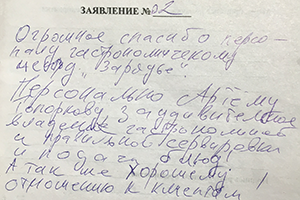 ЗАЯВЛЕНИЕ № 02
Огромное спасибо персо-
налу гастрономическому
"Зарядье".
Персонально Артёму
за удивительное
владение гастрономией
и правильной сервировки
и подачи блюд!
А так же хорошему
отношению к клиентам!